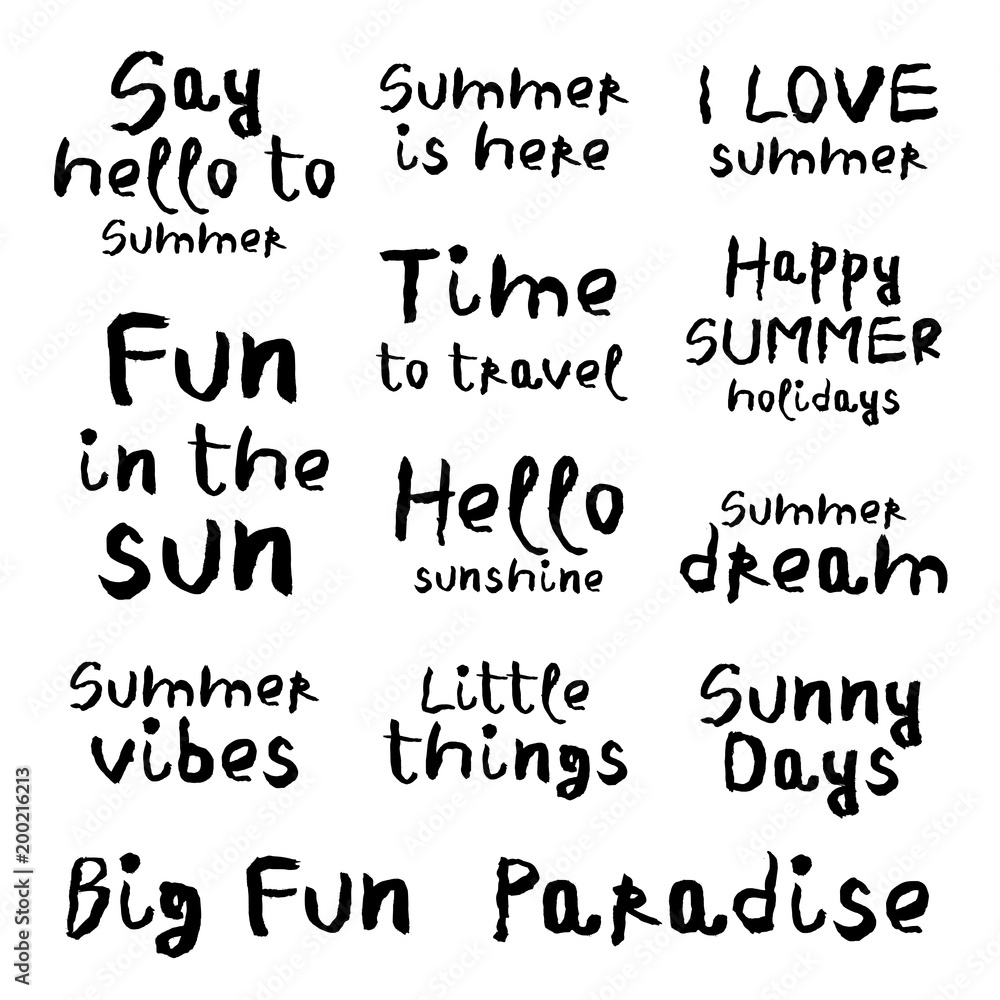 Say
hello to
Summer
Summer
is here
I LOVE
summer
Time
to travel
Happy
SUMMER
holidays
Fun
in the
sun
Hello
sunshine
Summer
dream
Summer
vibes
Little
things
Sunny
Days
Big Fun
Paradise
Adobe Stock | #200216213